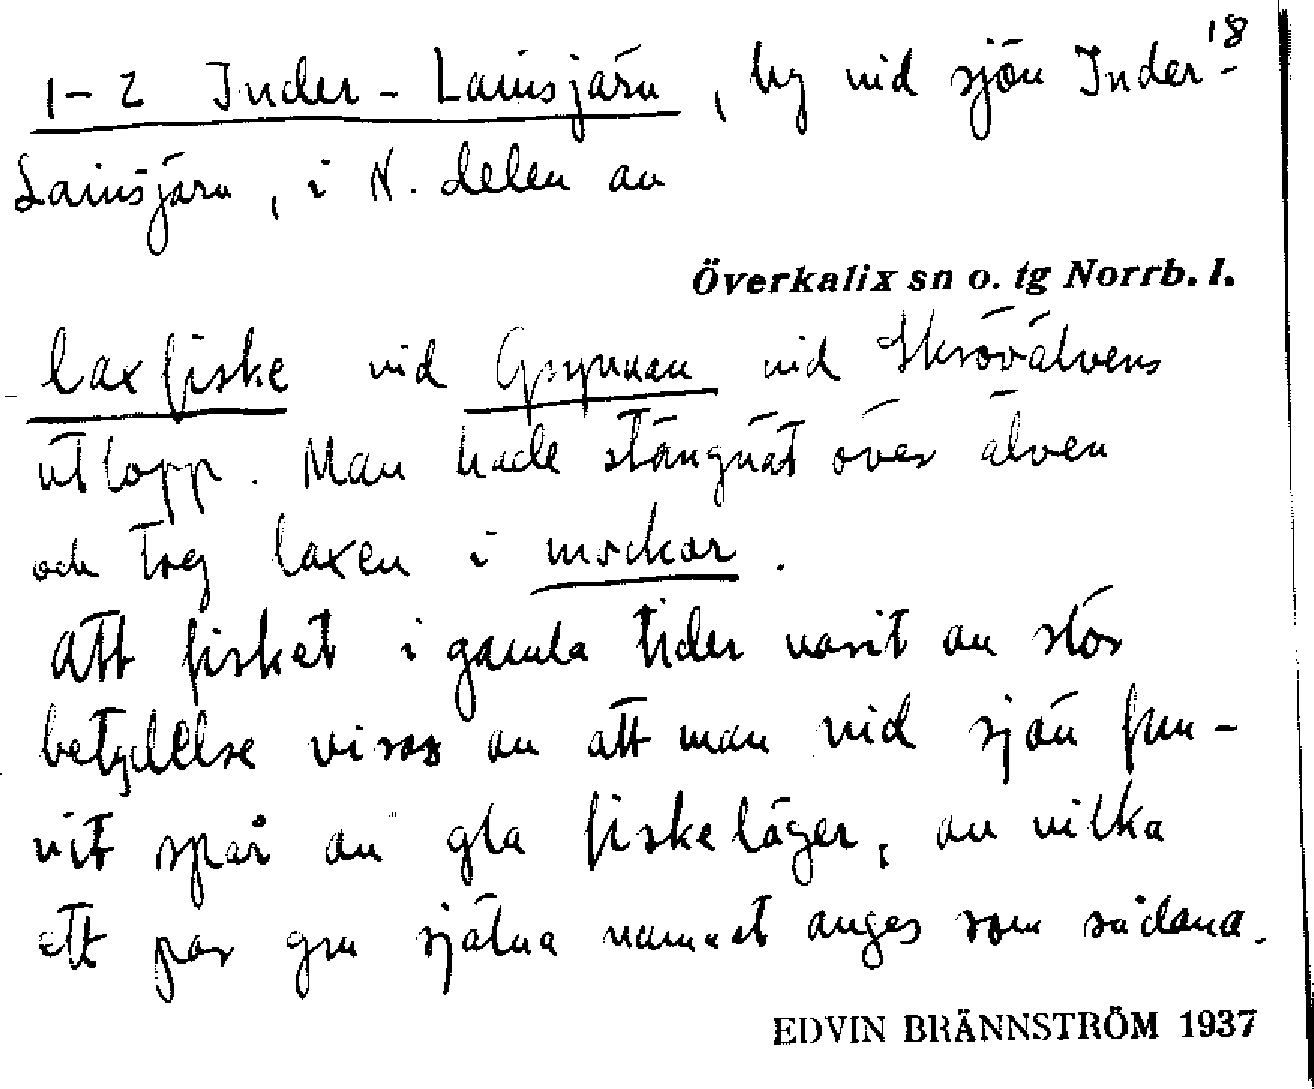 18
1-2 Inder-Lainsjärv, by vid sjön Inder-
Lainsjärv, i N. delen av
Överkalix sn o. tg Norrb. l.
laxfiske vid vid Skrövälvens
utlopp. Man hade stängnät över älven
och tog laxen i mockor.
Att fisket i gamla tider varit av stor
betydelse visas av att man vid sjön fun-
nit spår av gla fiskeläger, av vilka
ett par gm själva namnet anges som sådana.
EDVIN BRÄNNSTRÖM 1937